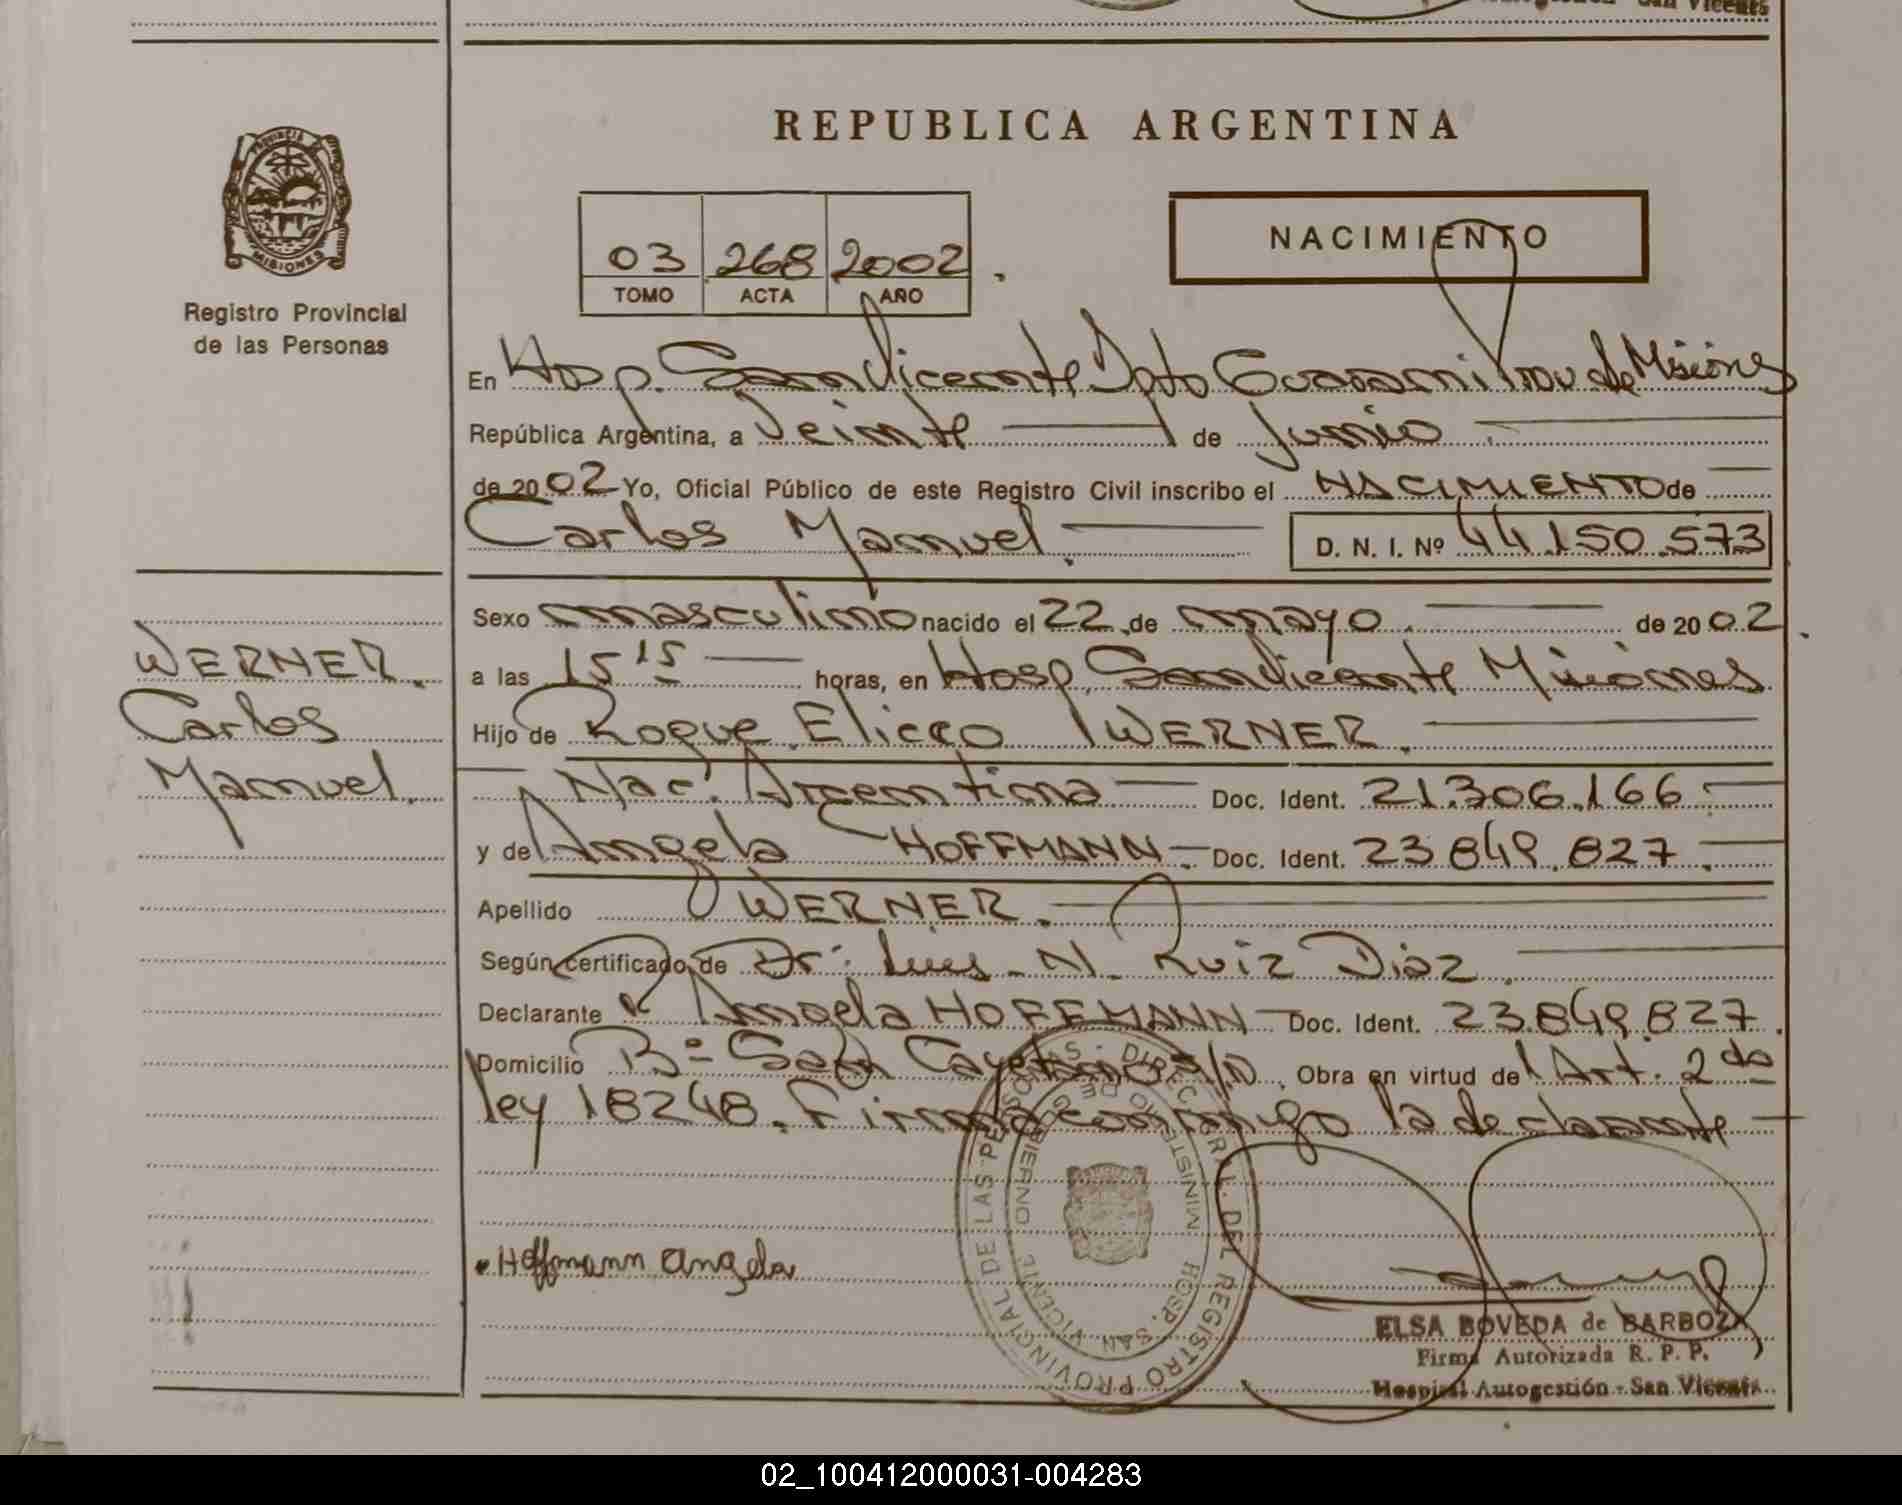 San Vicente
REPUBLICA ARGENTINA
PROVINCIA DE
MISIONES
Registro Provincial
de las Personas
NACIMIENTO
03 268 2002
TOMO ACTA AÑO
En Hosp. San Vicente Dpto Guarani Prov de Misiones
República Argentina, a Veinte de Junio
de 2002 Yo, Oficial Público de este Registro Civil inscribo el NACIMIENTO de
Carlos Manuel. D. N. I. Nº 44.150.573
Sexo masculino nacido el 22 de mayo de 2002
a las 15 15 horas, en Hosp. San Vicente Misiones
Hijo de Roque Eliceo WERNER.
Nac. Argentina Doc. Ident. 21.306.166
y de Angela HOFFMANN Doc. Ident. 23.849.827
Apellido WERNER.
Según certificado de Dr: Luis N. Ruiz Diaz.
Declarante Angela HOFFMANN Doc. Ident. 23.849.827.
Domicilio Bº San Cayetano S/D. Obra en virtud del Art. 2do
ley 18248. Firma conmigo la declarante
WERNER.
Carlos
Manuel.
Hoffmann Angela
DIREC. GRAL. DEL REGISTRO PROVINCIAL DE LAS PERSONAS
MINISTERIO DE GOBIERNO
HOSP. SAN VICENTE
ELSA BOVEDA de BARBOZA
Firma Autorizada R. P. P.
Hospital Autogestión - San Vicente
02_100412000031-004283